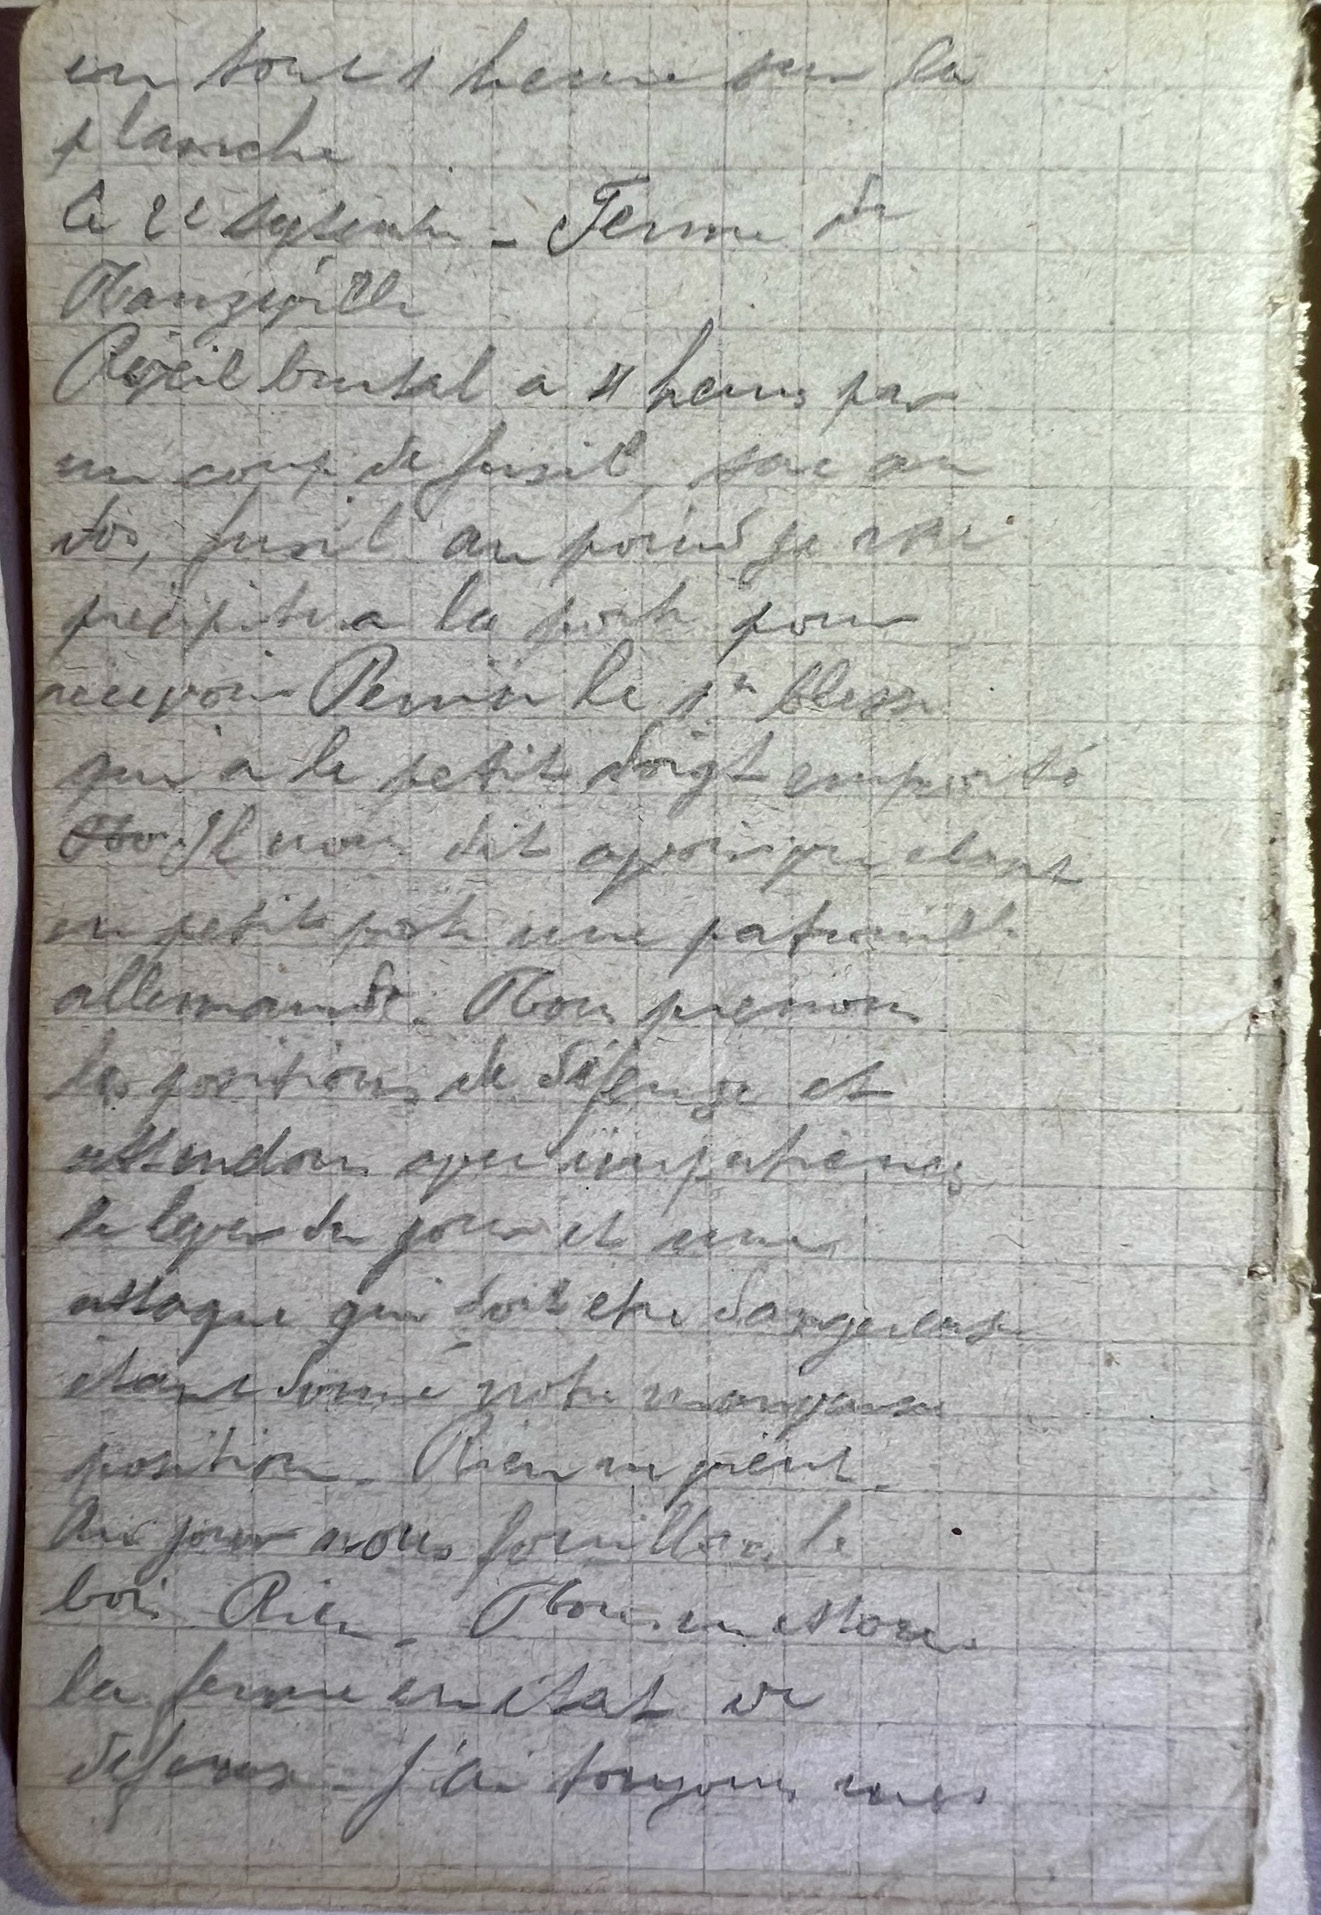 en tout 1 heure sur la
planche
le 22 septembre - Ferme de
Réveil brutal a 4 heures par
un coup de fusil, sac au
dos, fusil au poind je me
precipite a la porte pour
recevoir Perrin le 1er blesse
qui a le petit doigt emporté
Il nous dit avoir vu etant
en petit poste une patrouille
allemande. Nous prenons
les positions de défense et
attendons avec impatience
le lever du jour et une
attaque qui doit etre dangereuse
étant donné notre mauvaise
position. Rien ne vient.
Au jour nous fouillons le
bois Rien - Nous mettons
la ferme en état de
defense - J'ai toujours mes